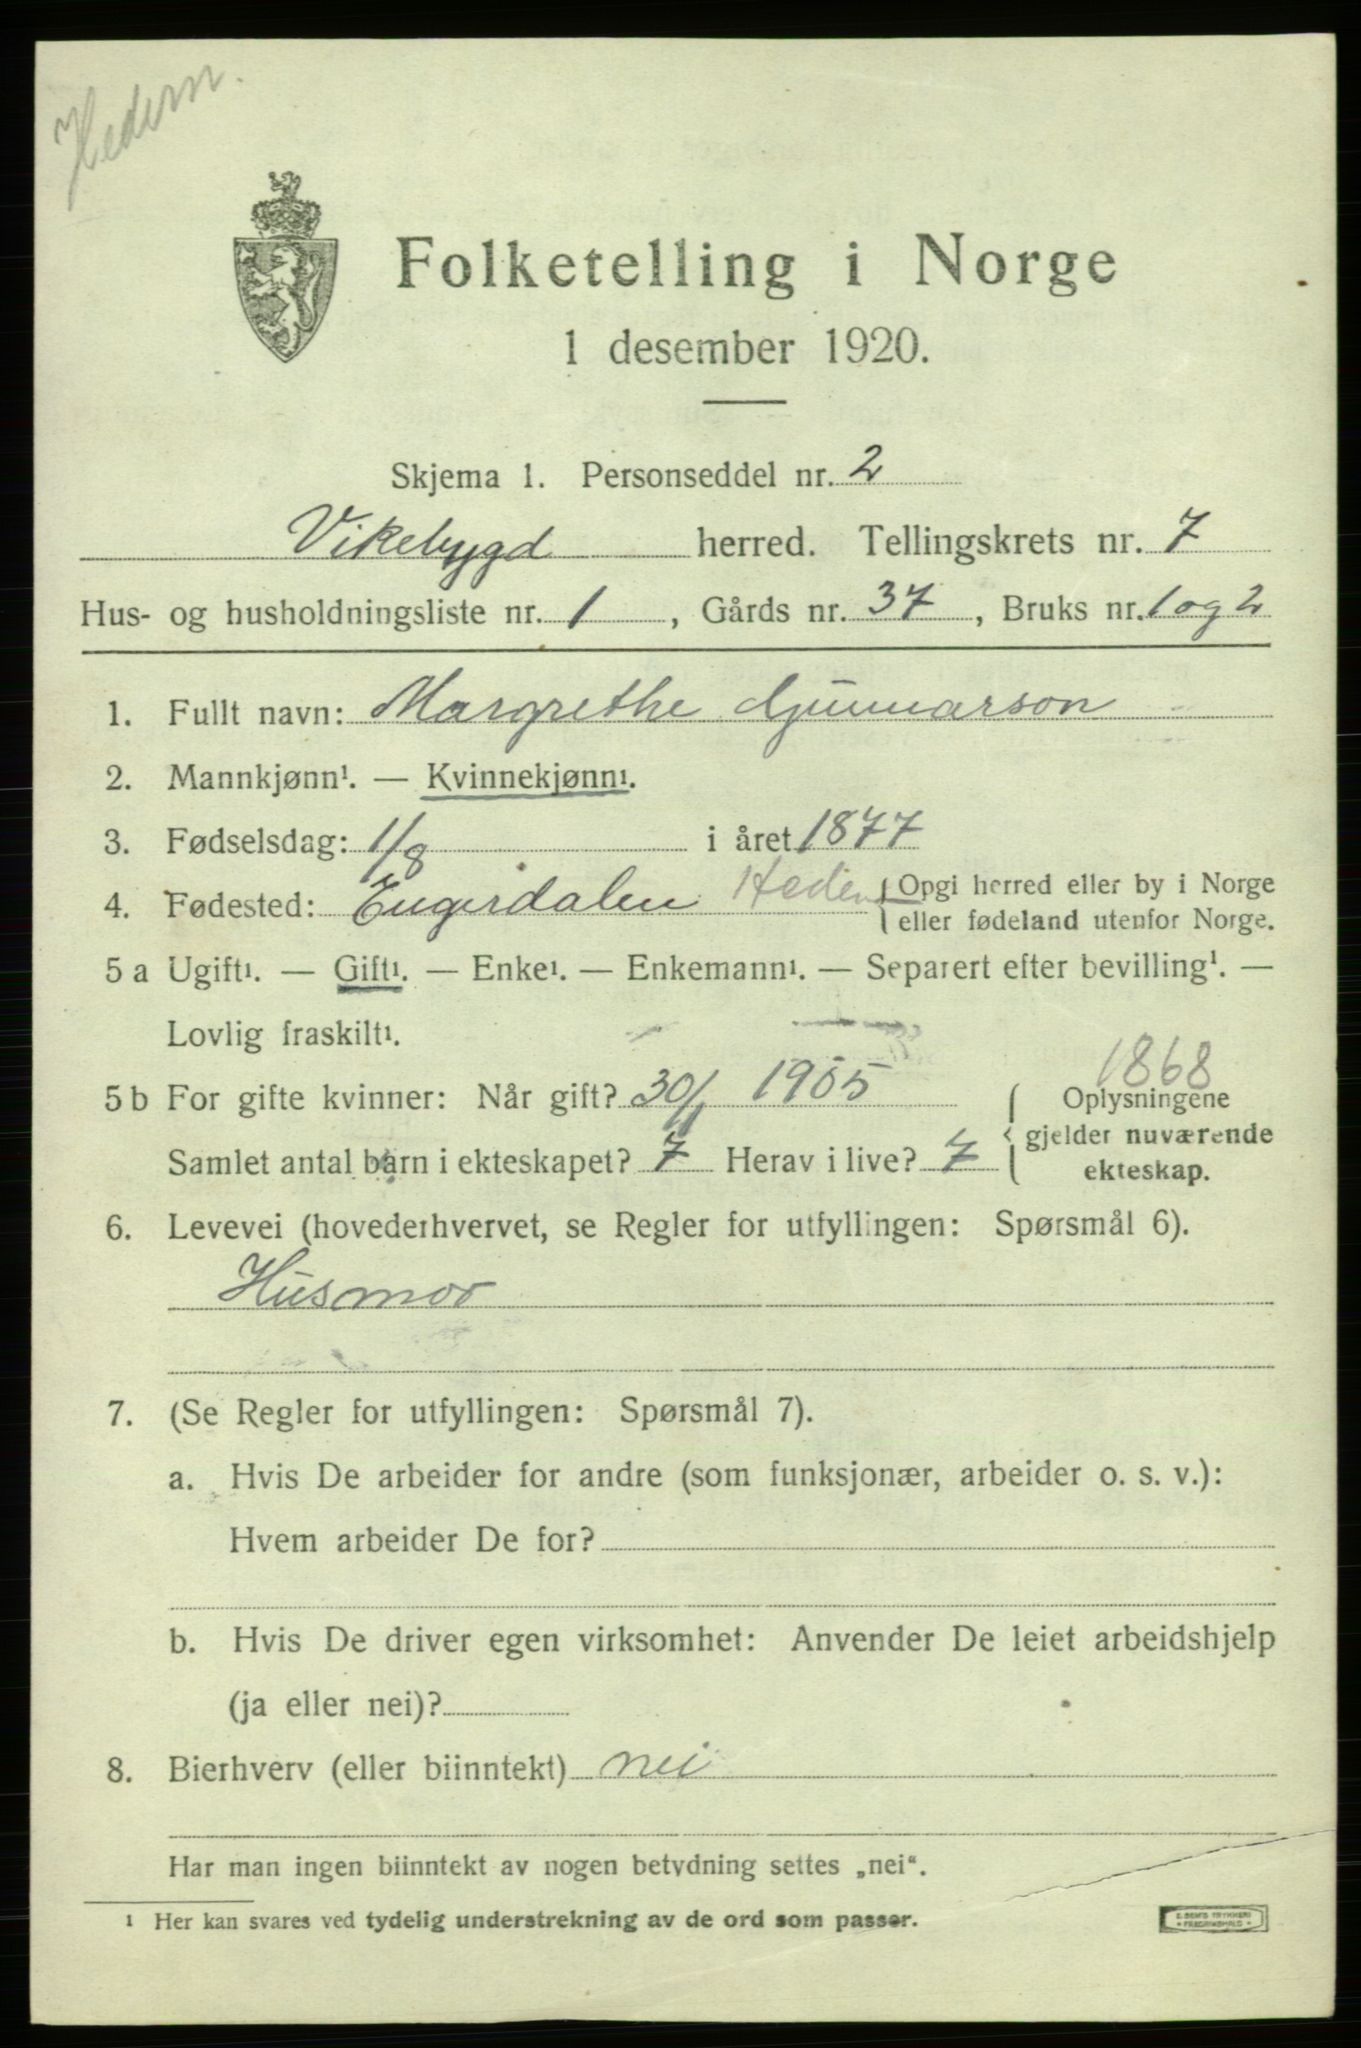 Hedem.
Folketelling i Norge
1 desember 1920.
Skjema 1. Personseddel nr. 2
Vikebygd herred. Tellingskrets nr. 7
Hus- og husholdningsliste nr. 1, Gårds nr. 37, Bruks nr. 1 og 2
1. Fullt navn: Margrethe Gunnarson
2. Mannkjønn¹. — Kvinnekjønn¹.
3. Fødselsdag: 1/8 i året 1877
4. Fødested: Engerdalen Hedem { Opgi herred eller by i Norge
eller fødeland utenfor Norge.
5 a Ugift¹. — Gift¹. — Enke¹. — Enkemann¹. — Separert efter bevilling¹. —
Lovlig fraskilt¹.
1868
5 b For gifte kvinner: Når gift? 30/1 1905 { Oplysningene
gjelder nuværende
Samlet antal barn i ekteskapet? 7 Herav i live? 7
ekteskap.
6. Levevei (hovederhvervet, se Regler for utfyllingen: Spørsmål 6).
Husmor
7. (Se Regler for utfyllingen: Spørsmål 7).
a. Hvis De arbeider for andre (som funksjonær, arbeider o. s. v.):
Hvem arbeider De for?
b. Hvis De driver egen virksomhet: Anvender De leiet arbeidshjelp
(ja eller nei)?
8. Bierhverv (eller biinntekt) nei
Har man ingen biinntekt av nogen betydning settes „nei“.
¹ Her kan svares ved tydelig understrekning av de ord som passer.
E. SEM'S TRYKKERI
• FREDRIKSHALD •